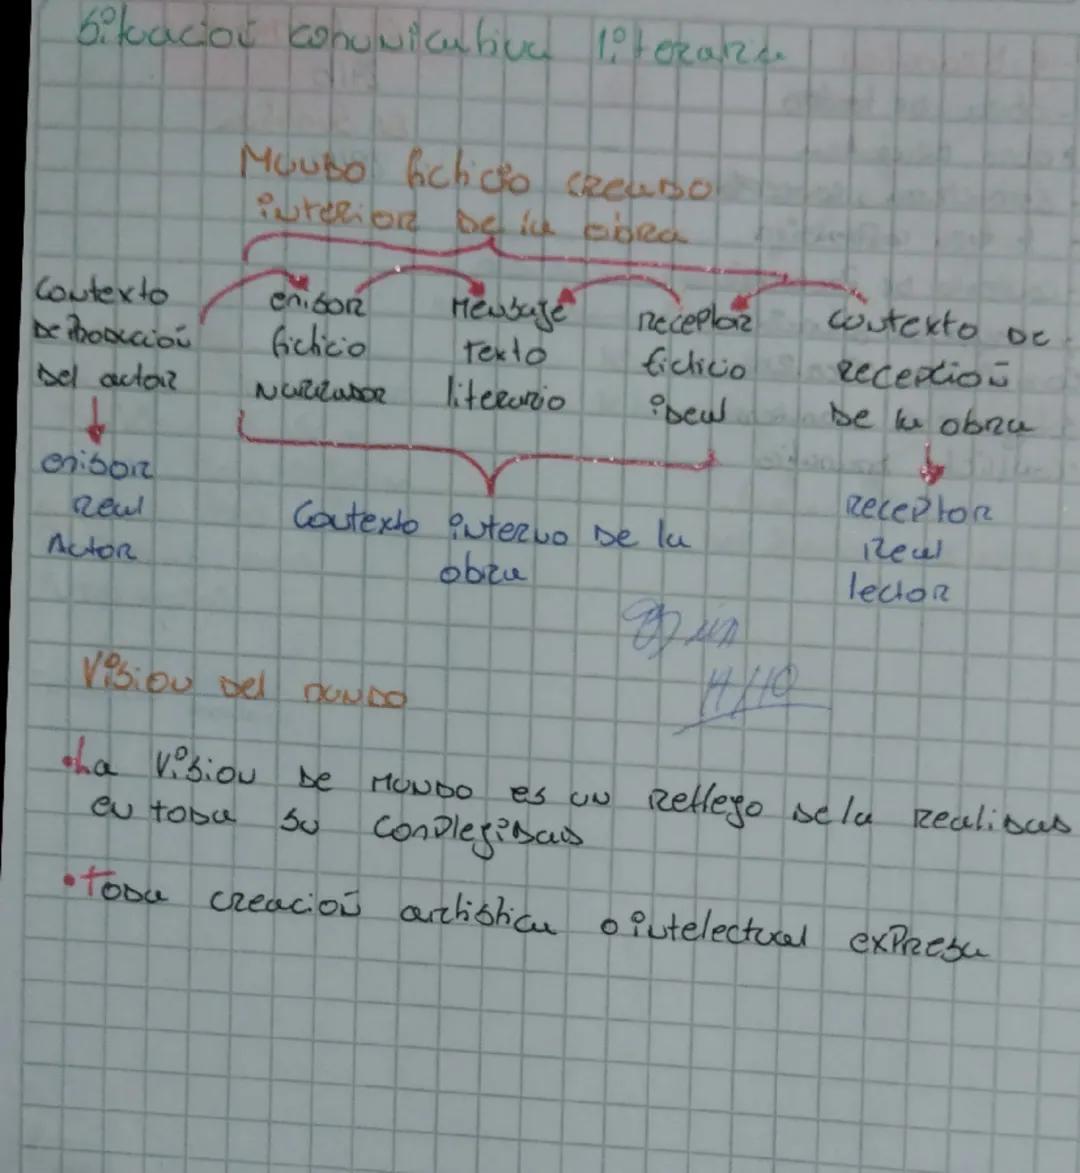 Situación comunicativa literaria
Mundo ficticio creado
interior de la obra
Contexto
de Producción
del actor
emisor
ficticio
Narrador
Mensaje
texto
literario
receptor
ficticio
ideal
contexto de
recepción
de la obra
emisor
real
Actor
Contexto interno de la
obra
receptor
real
lector
4/10
Vision del mundo
• La Vision de Mundo es un reflego de la realidad
en toda su conplegidad
• toda creación artistica o intelectual expresa